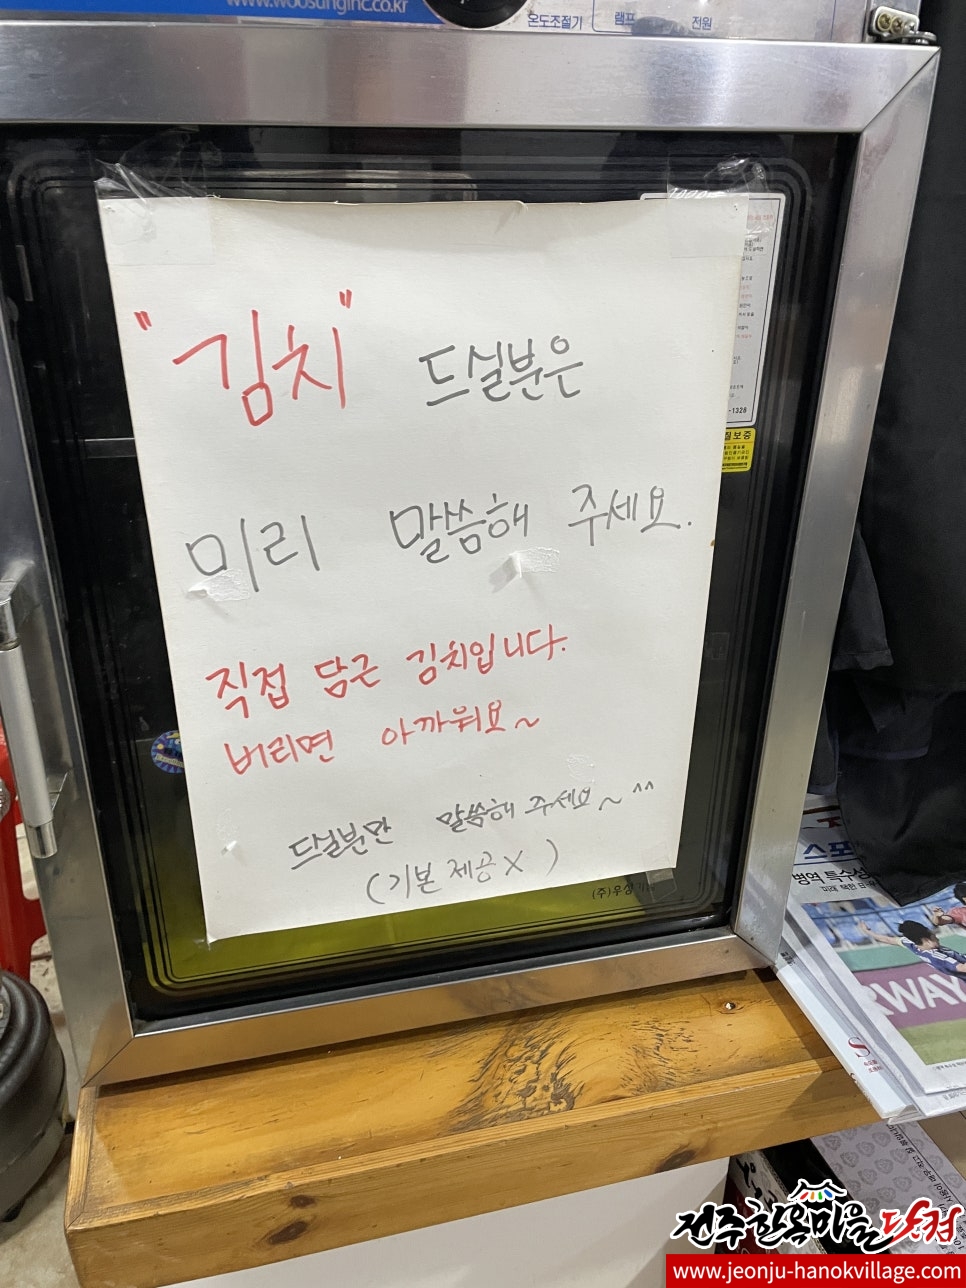 www.woosunginc.co.kr
온도조절기 램프 전원
"김치" 드실분은
미리 말씀해 주세요.
직접 담근 김치입니다.
버리면 아까워요~
드실분만 말씀해 주세요~ ^^
(기본 제공 X )
-1328
질보증
(주)우성
스포
병역 특수성
RWAY
전주한옥마을닷컴
www.jeonju-hanokvillage.com